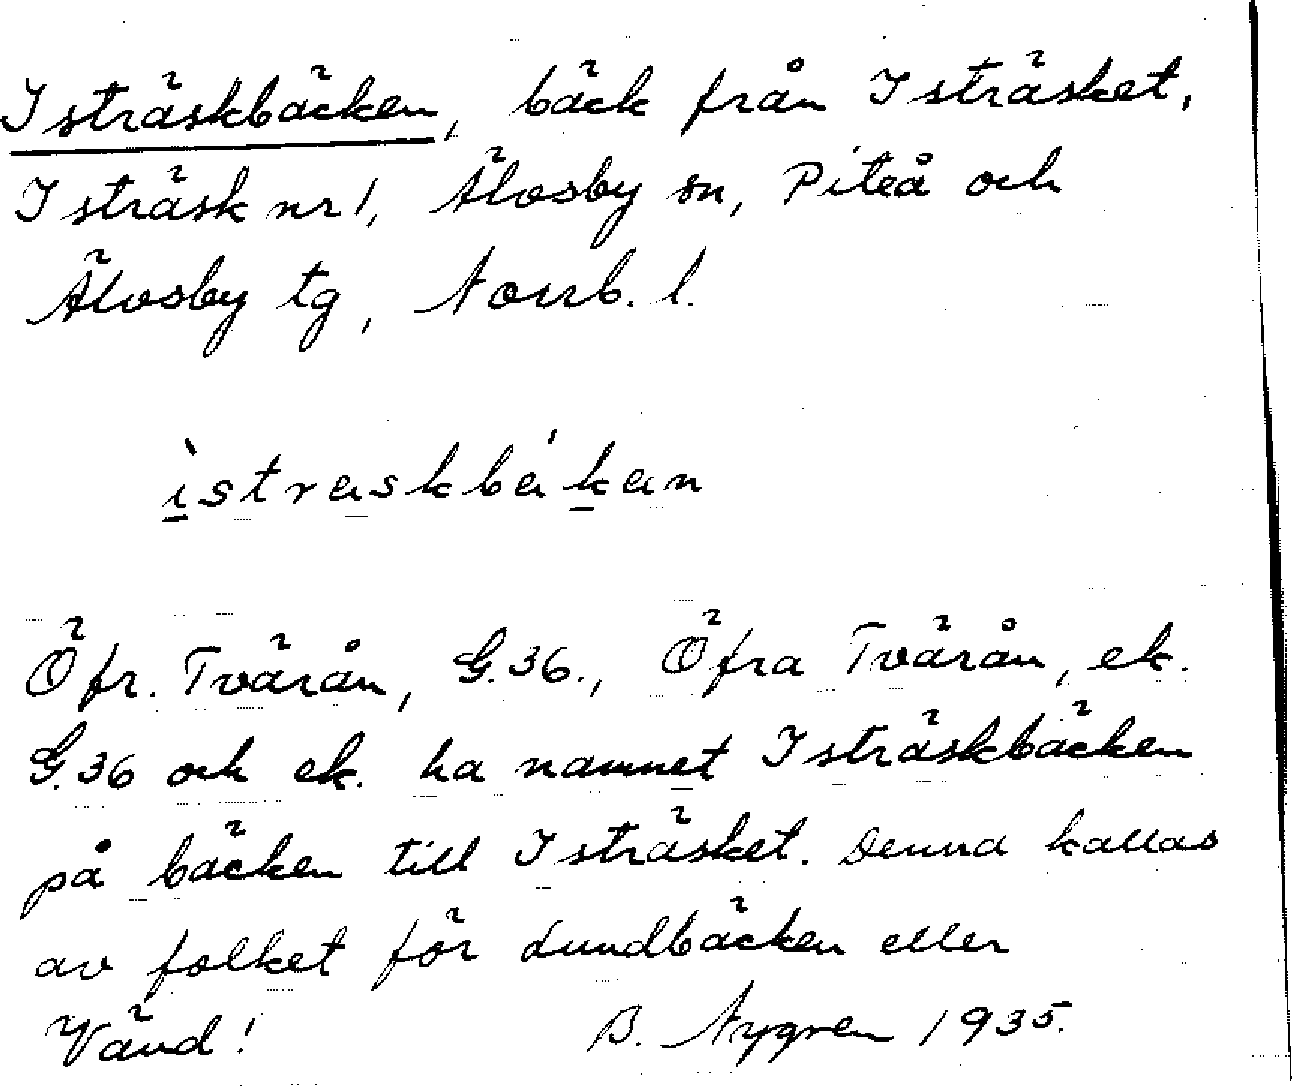 Isträskbäcken, bäck från Isträsket,
Isträsk nr 1, Älvsby sn, Piteå och
Älvsby tg, Norrb. l.
ìstraskbá̀kan
Öfr. Tvärån, G.36., Öfra Tvärån, ek.
G.36 och ek. ha namnet Isträskbäcken
på bäcken till Isträsket. Denna kallas
av folket för Lundbäcken eller
Vänd! B. Nygren 1935.